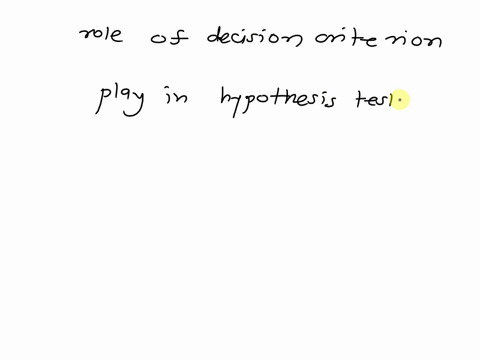 role of decision criterion
play in hypothesis test